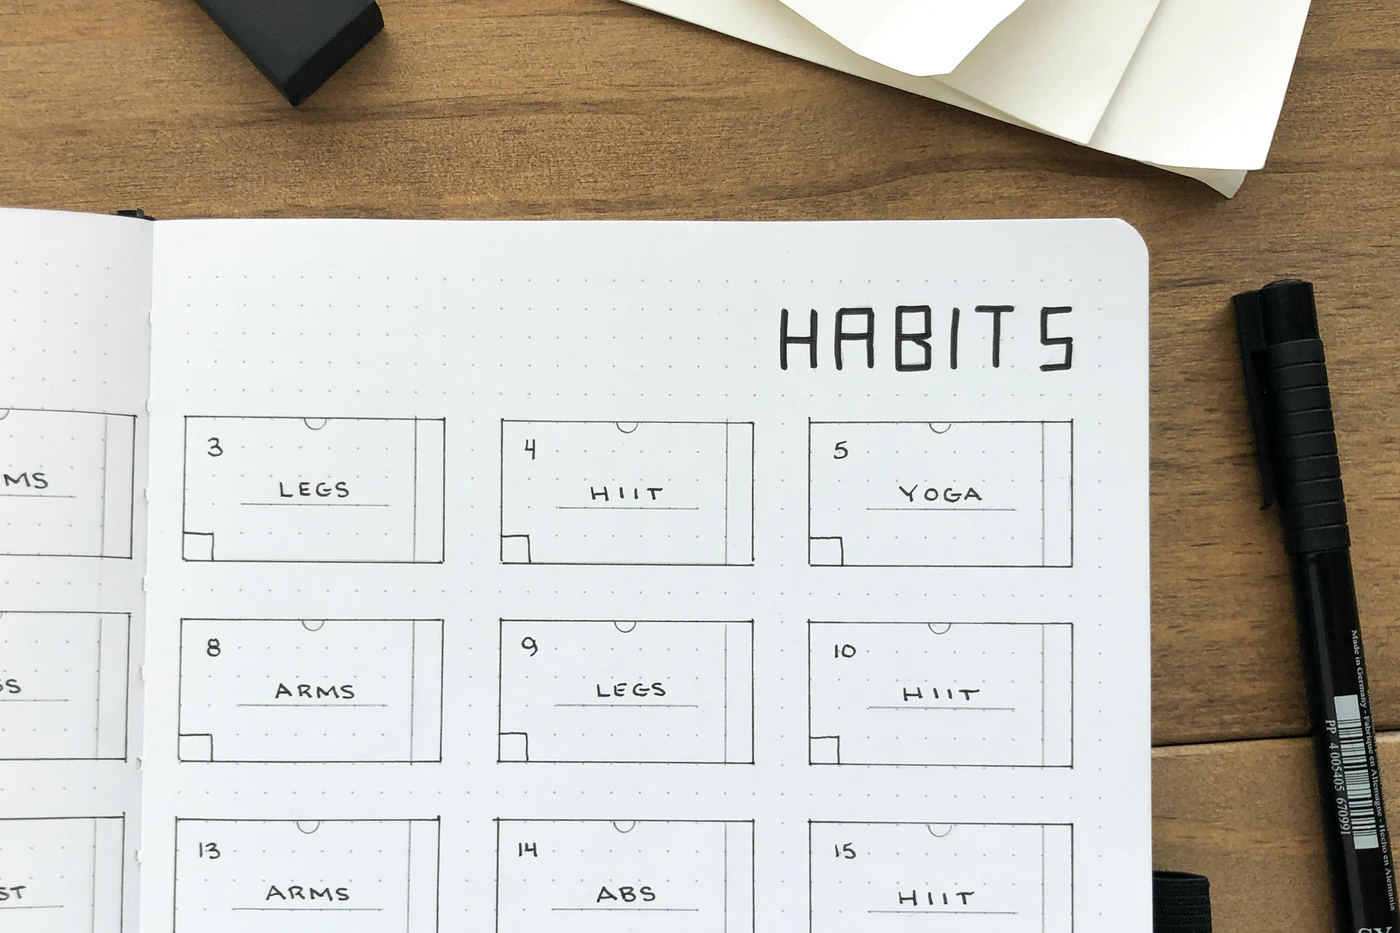 HABITS
MS
3
LEGS
4
HIIT
5
YOGA
GS
8
ARMS
9
LEGS
10
HIIT
ST
13
ARMS
14
ABS
15
HIIT
Made in Germany - Fabriqué en Allemagne - Hecho en Alemania
PP 4 005405 670991